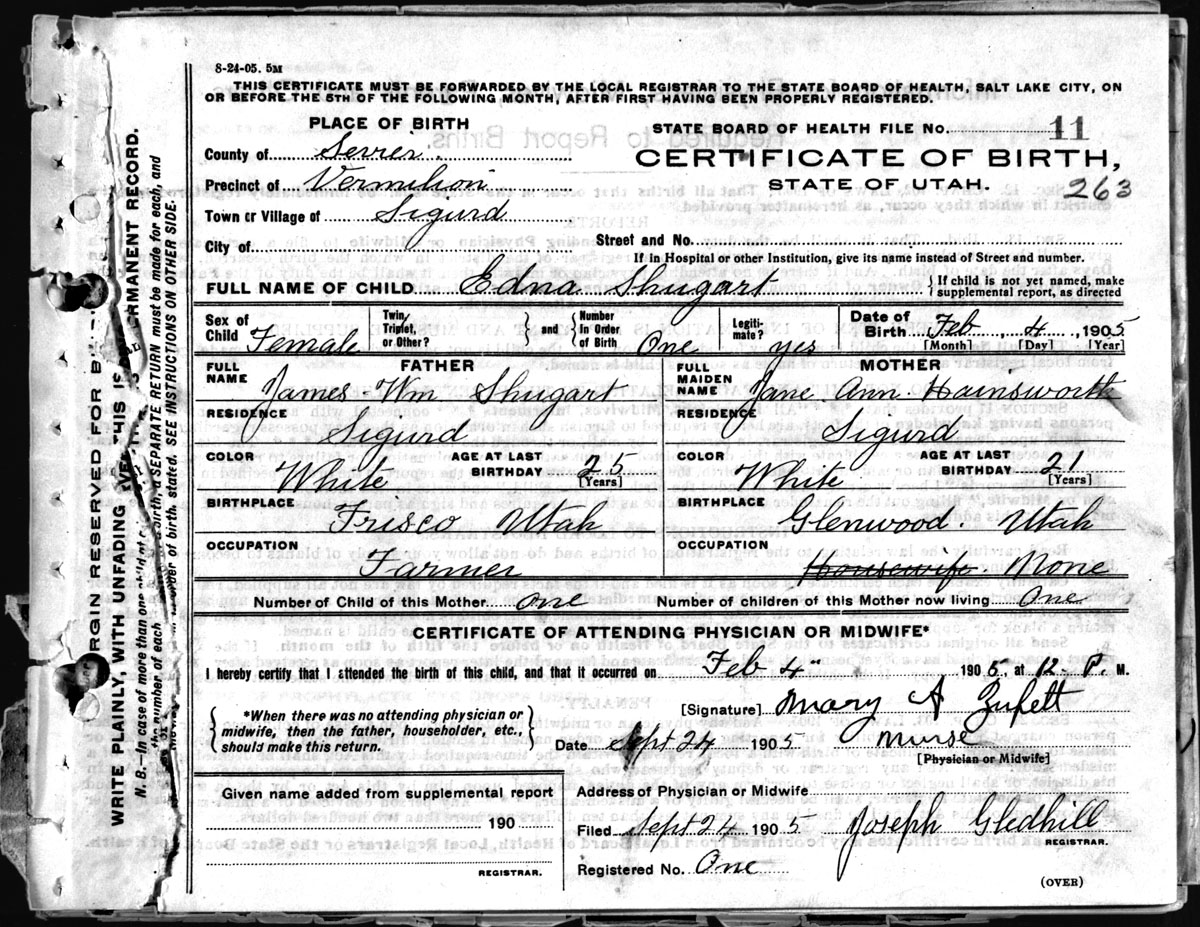 8-24-05. 5M
THIS CERTIFICATE MUST BE FORWARDED BY THE LOCAL REGISTRAR TO THE STATE BOARD OF HEALTH, SALT LAKE CITY, ON
OR BEFORE THE 5TH OF THE FOLLOWING MONTH, AFTER FIRST HAVING BEEN PROPERLY REGISTERED.
PLACE OF BIRTH
County of Sevier.
Precinct of Vermilion
Town or Village of Sigurd
City of
STATE BOARD OF HEALTH FILE No. 11
CERTIFICATE OF BIRTH,
STATE OF UTAH. 263
Street and No.
If in Hospital or other Institution, give its name instead of Street and number.
FULL NAME OF CHILD Edna Shugart {If child is not yet named, make
supplemental report, as directed
Sex of Child Female
Twin, Triplet, or Other? } and { Number in Order of Birth One
Legiti-mate? yes
Date of Birth Feb 4 1905
[Month] [Day] [Year]
FATHER
FULL NAME James Wm Shugart
RESIDENCE Sigurd
COLOR White
AGE AT LAST BIRTHDAY 25
[Years]
BIRTHPLACE Frisco Utah
OCCUPATION Farmer
MOTHER
FULL MAIDEN NAME Jane Ann Hainsworth
RESIDENCE Sigurd
COLOR White
AGE AT LAST BIRTHDAY 21
[Years]
BIRTHPLACE Glenwood. Utah
OCCUPATION Housewife None
Number of Child of this Mother One
Number of children of this Mother now living One
CERTIFICATE OF ATTENDING PHYSICIAN OR MIDWIFE*
I hereby certify that I attended the birth of this child, and that it occurred on Feb 4 1905, at 12 P. M.
{ *When there was no attending physician or
midwife, then the father, householder, etc.,
should make this return. }
[Signature] Mary A
Date Sept 24 1905 Nurse
[Physician or Midwife]
Given name added from supplemental report
190
REGISTRAR.
Address of Physician or Midwife
Filed Sept 24 1905 Joseph Gledhill
REGISTRAR.
Registered No. One
(OVER)
RGIN RESERVED FOR B
WRITE PLAINLY, WITH UNFADING THIS IS RMANENT RECORD.
N. B.—In case of more than one child a SEPARATE RETURN must be made for each, and
the number of each order of birth, stated. SEE INSTRUCTIONS ON OTHER SIDE.